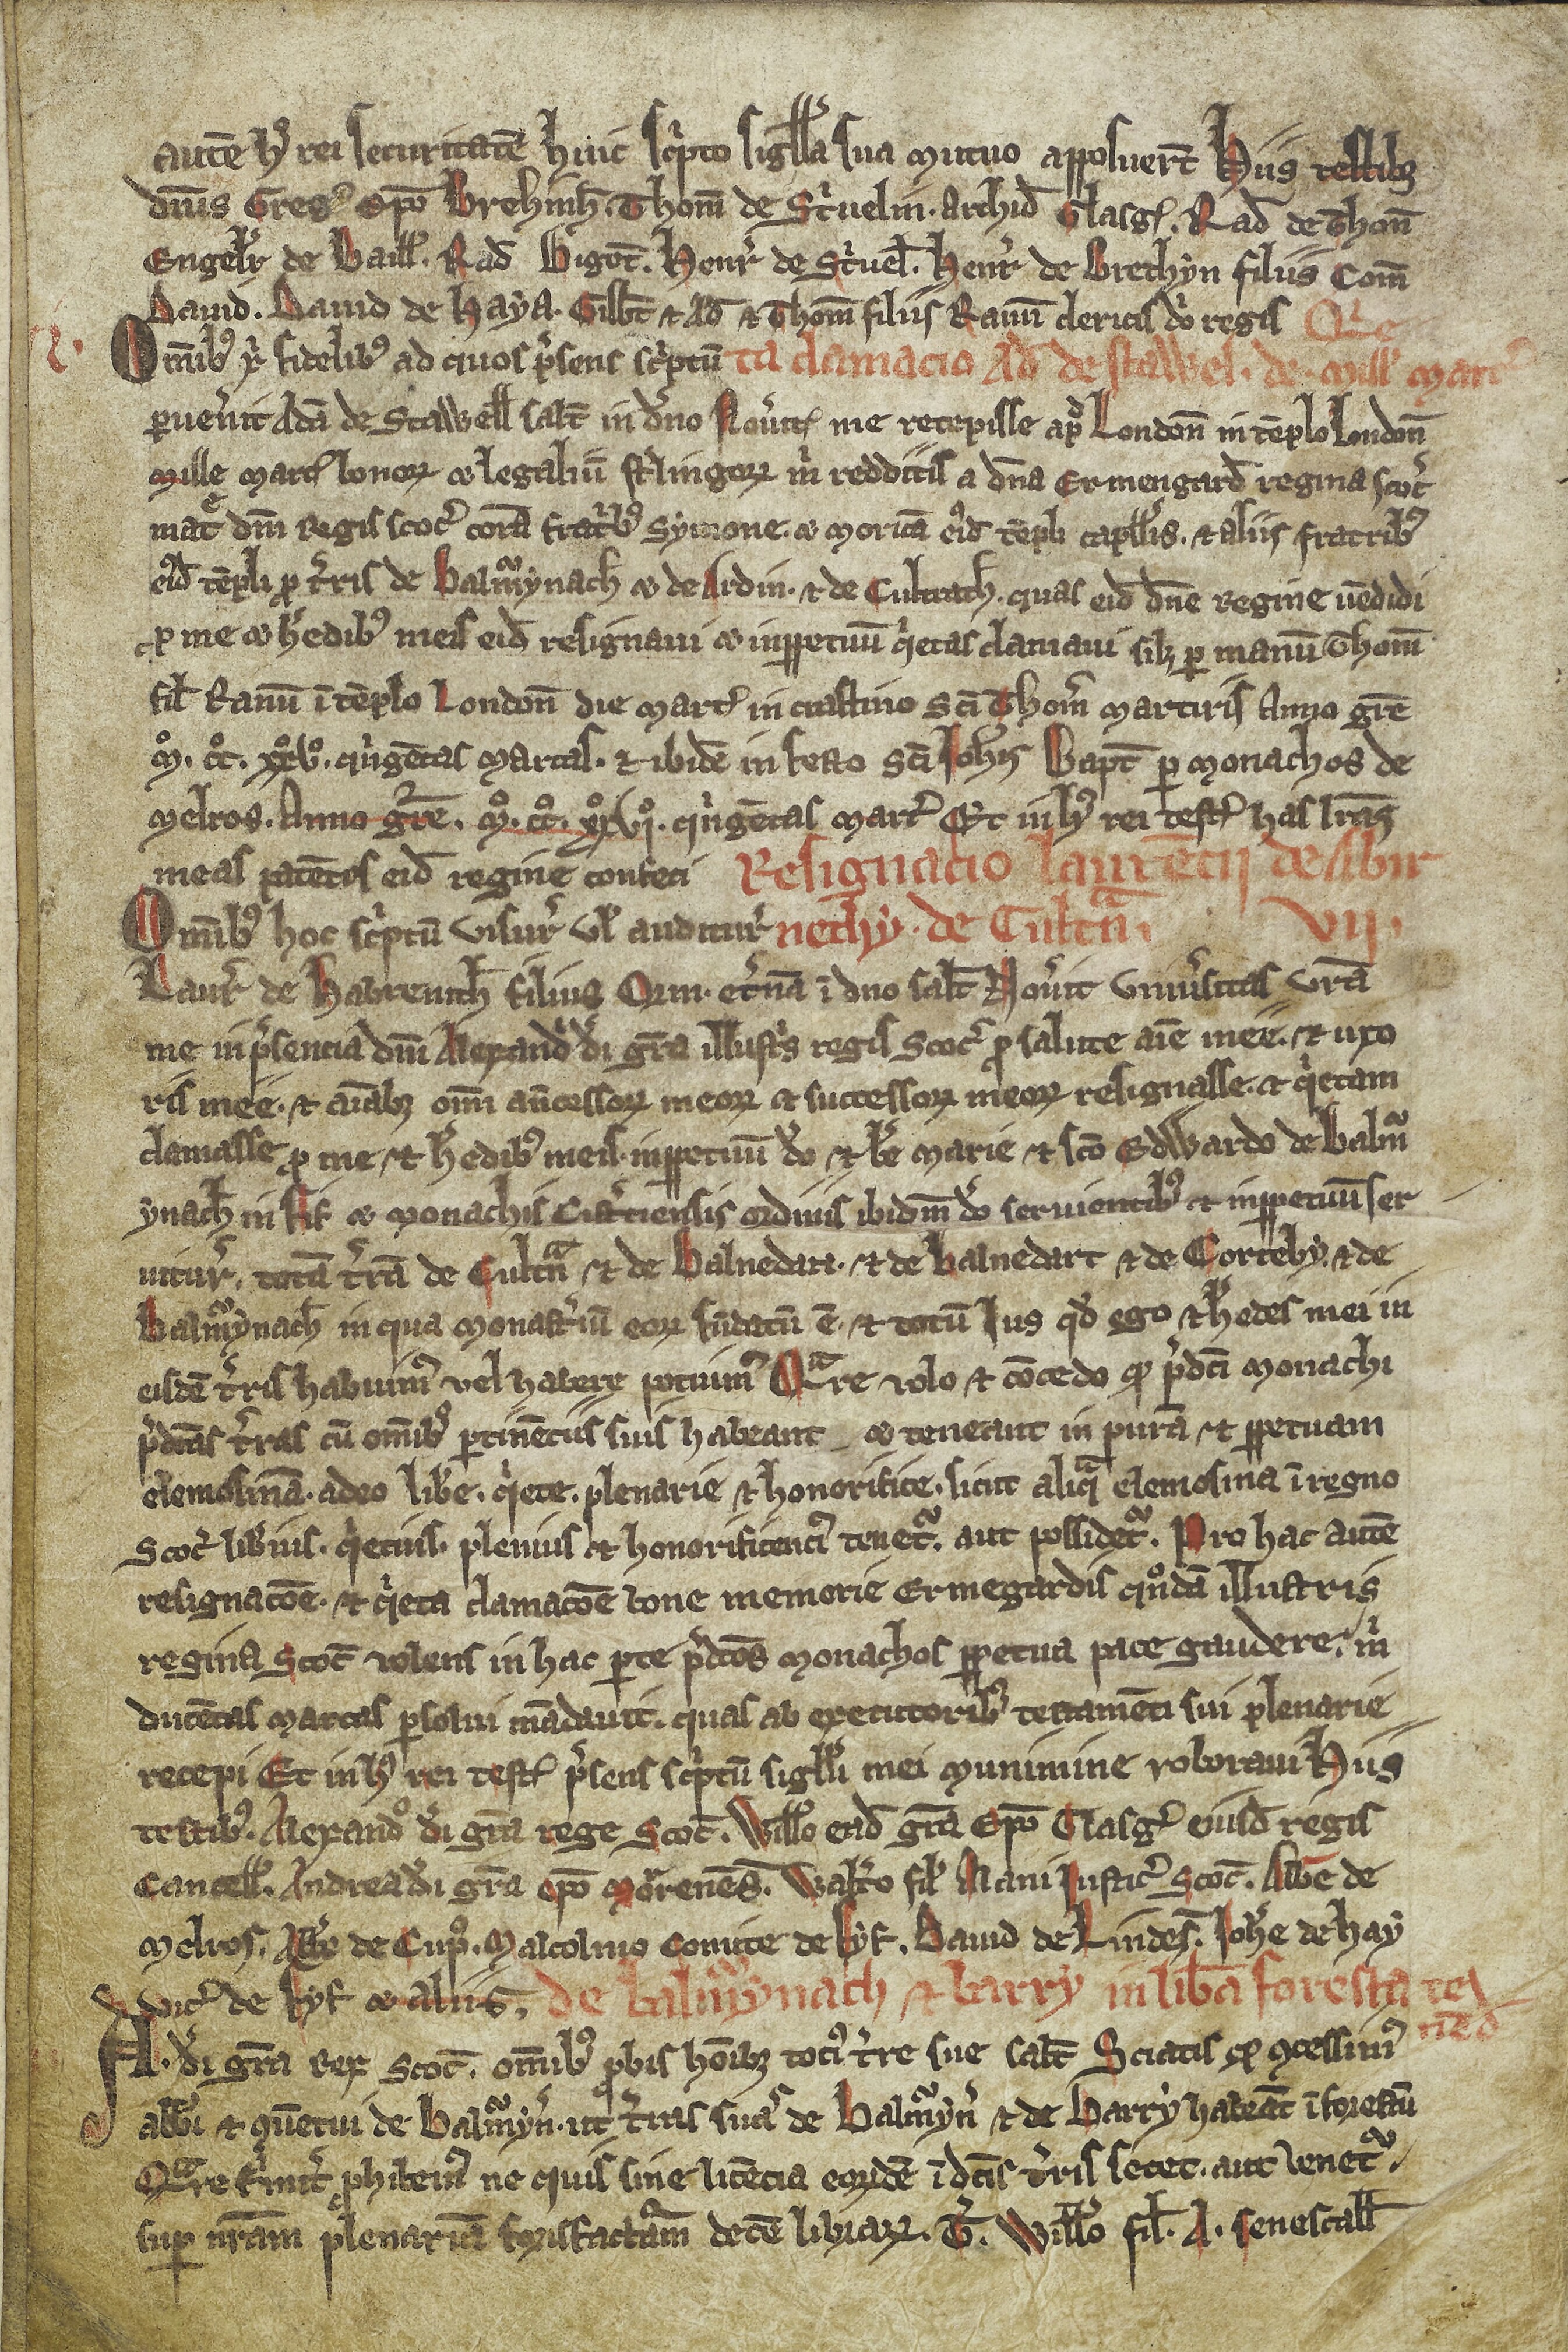 autē hꝰ rei securitatē huic sc͛pto sigll̄a sua mutuo apposuer̄t Hiis testibꝫ
dn̄is Greg͛ Ep̄o Brehinen̄. Thom̄ de St͛uelin. Archid̄ Glasg̃. Rad̄ de Thom̄
Engelr̄ de Baill̄. Rad̄ Bigot̄. Henr̄ de St͛uel̄. Henr̄ de Brechyn filiis Com̄
Dauid. Dauid de Haya. Gilbt̄ et Ad̄ et Thom̄ filiis Ranū clericis dn̄i regis Qͥe
Om̄ibꝰ xp̄i fidelibꝰ ad quos p͛sens sc͛ptū ta clamacio Ad̄ de stawel. de. mill̄ marc͛
ꝑuen͛it Adā de Stawell̄ salt̄ in dn̄o Nou͛itꝭ me recepisse apd̄ London̄ in tēplo London̄
mille marcꝭ bonoꝝ et legaliū st͛lingoꝝ m͛ redditis a dn̄a Ermengard̄ regina scoc͛
mat͛e dn̄i Regis scoc͛ corā fratribꝰ Symone. et Moricā eid̄ tēpli capll̄is. et aliis fratribꝰ
eid̄ tēpli ꝓ t͛ris de Balm͛ynach et de Ardin. et de Cultrach. quas eid̄ dn̄e Regine uēdidi
ꝓ me et h͛edibꝰ meis eid̄ resignaui et inꝑpetuū qͥetas clamaui sibi ꝑ manū Thom̄
fil̄ Ranū ī tēplo London̄ die marcꝭ in crastino Sc̄i Thom̄ martiris Anno grē
mͦ. ccͦ. xxͦvͦ. qͥngētas marcas. et ibidē in festo Sc̄i Joh̄is Bapt̄ ꝑ monachos de
melros. Anno grē. mͦ. ccͦ. xxͦvjͦ. qͥngētas marc͛ Et in hꝰ rei testꝭ has lr̄as
meas patētes eid̄ regine confeci Resignacio laurēcij de abir
Om̄ibꝰ hoc sc͛ptū visur͛ ul̄ auditur͛ nethy. de Cultͣ. vij.
Laur͛ de Habrenith̄ filius Orm. et͛nā ī dn̄o salt̄ Nou͛it uniu͛sitas vrā
me in p͛sencia dn̄i Alexand͛ di grā illust͛s regis Scoc͛ ꝓ salute aīe mee. et uxo
ris mee. et aīabꝫ om̄i an̄cessoꝝ meoꝝ et successoꝝ meoꝝ resignasse. et qͥetam
clamasse ꝓ me et h͛edibꝰ meis. inꝑpetuū do͛ et be͛ Marie et sc̄o Edwardo de Balm͛
ynach̄ in Fif et Monachis Cist͛ciensis ordinis ibidm̄ do͛ seruientibꝰ et inꝑpetuū ser
uitur͛. totā t͛rā de Cultͣ et de Balnedan. et de Balnedart et de Corteby. et de
Balm͛ynach̄ in qua monast͛iū eoꝝ fūdatū ē. et totū Jus qd̄ ego et h͛edes mei in
eisdē t͛ris habuimꝰ vel habere potuimꝰ Qͣre volo et cōcedo qͦ p͛dc̄i monachi
p͛dc̄as t͛ras cū om̄ibꝰ ꝑtinēciis suis habeant et teneant in purā et ꝑpetuam
elemosinā. adeo lib͛e. qͥete. plenarie et honorifice. sicut aliqͣ elemosina ī regno
Scoc͛ lib͛ius. qͥetius. plenius et honorificenciꝰ tenetᷣ. aut possidetᷣ. Pro hac autē
resignacōe. et qͥeta clamacōe bone memorie Ermegardis quōdā illustris
regina Scoc̄ volens in hac ꝑte p͛dc̄os monachos ꝑpetua pace gaudere. m͛
ducētas marcas ꝑsolui mādauit. quas ab executoribꝰ testamēti sui plenarie
recepi Et in hꝰ rei testꝭ p͛sens sc͛ptū sigilli mei munimine roboraui Hiis
testibꝰ. Alexandͦ di grā rege Scoc̄. Willo͛ ead̄ grā Ep̄o Glasg͛ eiusd̄ regis
Cancell̄. Andrea di grā ep̄o Morenen̄s. Walt͛o fil̄ Alani Justic͛ Scoc̄. Abb̄e de
Melros. Abb̄e de Cupͦ. Malcolmo Comite de Fyf. Dauid de Lindes̄. Joh̄e de Hay
vic͛ de Fyf et aliis. De balm͛ynach et barry in lib͛a foresta te
A. di grā Rex Scoc̄. om̄ibꝰ ꝓbis hoībꝫ tociꝰ t͛re sue salt̄ Sciatis qͦ ꝯcessimꝰ nēd̄
abb̄i et ꝯuētui de Balm͛yn̄. ut t͛ras suas de Balm͛yn̄ et de Barry habeāt ī forestū
Qͣre firmit͛ ꝓhibemꝰ ne quis sine licēcia eoꝝdē ī dc̄is t͛ris secet. aut venetᷣ.
suꝑ nr̄am plenariā forisfacturā decē libraꝝ. T͛. Willo͛ fil̄. A. senescall̄